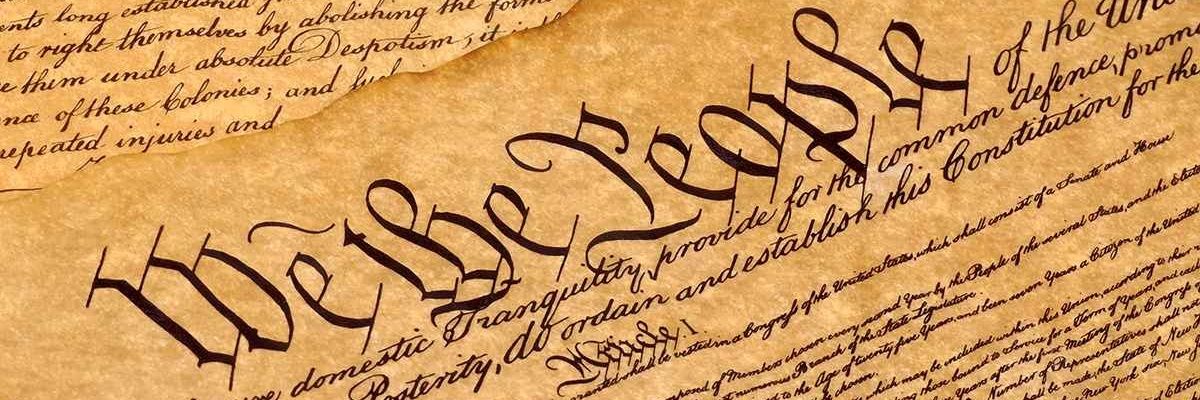 ents long established
to right themselves by abolishing the forms
them under absolute Despotism; it is
of these Colonies; and
repeated injuries and
We the People of the
domestic Tranquility, provide for the common defence, promo
Posterity, do ordain and establish this Constitution for the
Article. I.
shall be vested in a Congress of the United States, which shall consist of a Senate and House
posed of Members chosen every second Year by the People of the several States, and the
numerous Branch of the State Legislature.
to the Age of twenty five Years, and been seven Years a Citizen of the United
be chosen.
which may be included within this Union, according to their
those bound to Service for a Term of Years, and
Years after the first Meeting of the Congress
Number of Representatives shall not
shall be made, the State of New
New York six, New